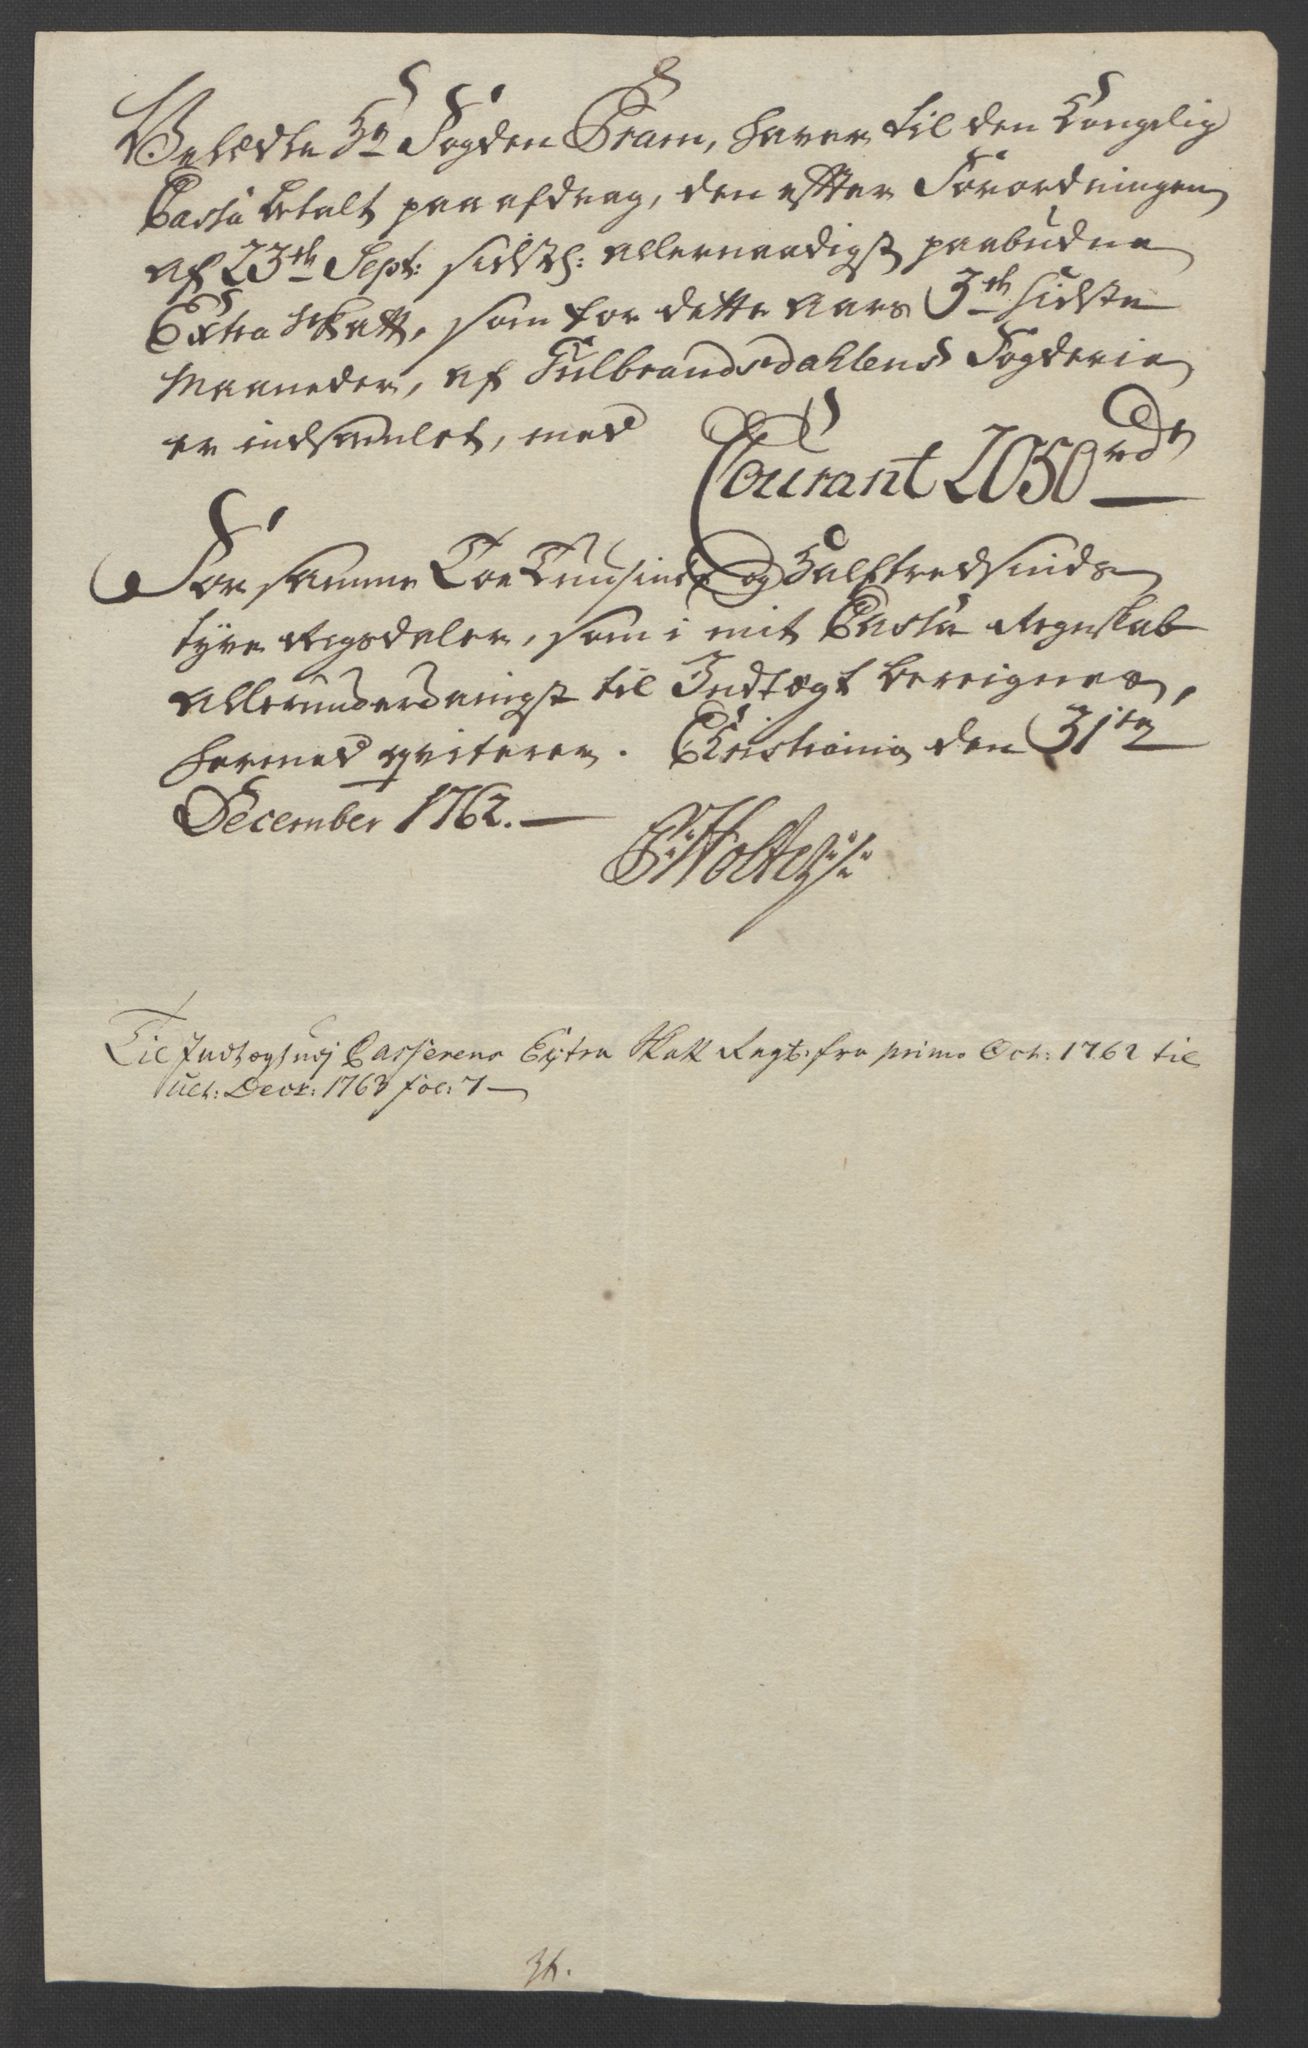 Velædle Hr Fogden Pram, haver til den Kongelig
Cassa betalt paa afdrag, den efter Forordningen
af 23th Sept: sidstl: allernaadigst paabudne
Extra Skatt, som for dette Aars 3de sidste
Maaneder, af Gulbrandsdahlens Fogderie
er indsamlet, med
Courant 2050 rdr
For samme Toe Tusinde og Halftredsinds
tyve Rigsdaler, som i mit Cassa Regnskab
allerunderdanigst til Indtægt bereignes,
hermed qviterer. Christiania den 31te
December 1762.
P: Holte
Til Indtægt udj Casserens Extra Skatt Regt: fra primo Oct: 1762 til
ult: Decr: 1763 fol: 7
34.